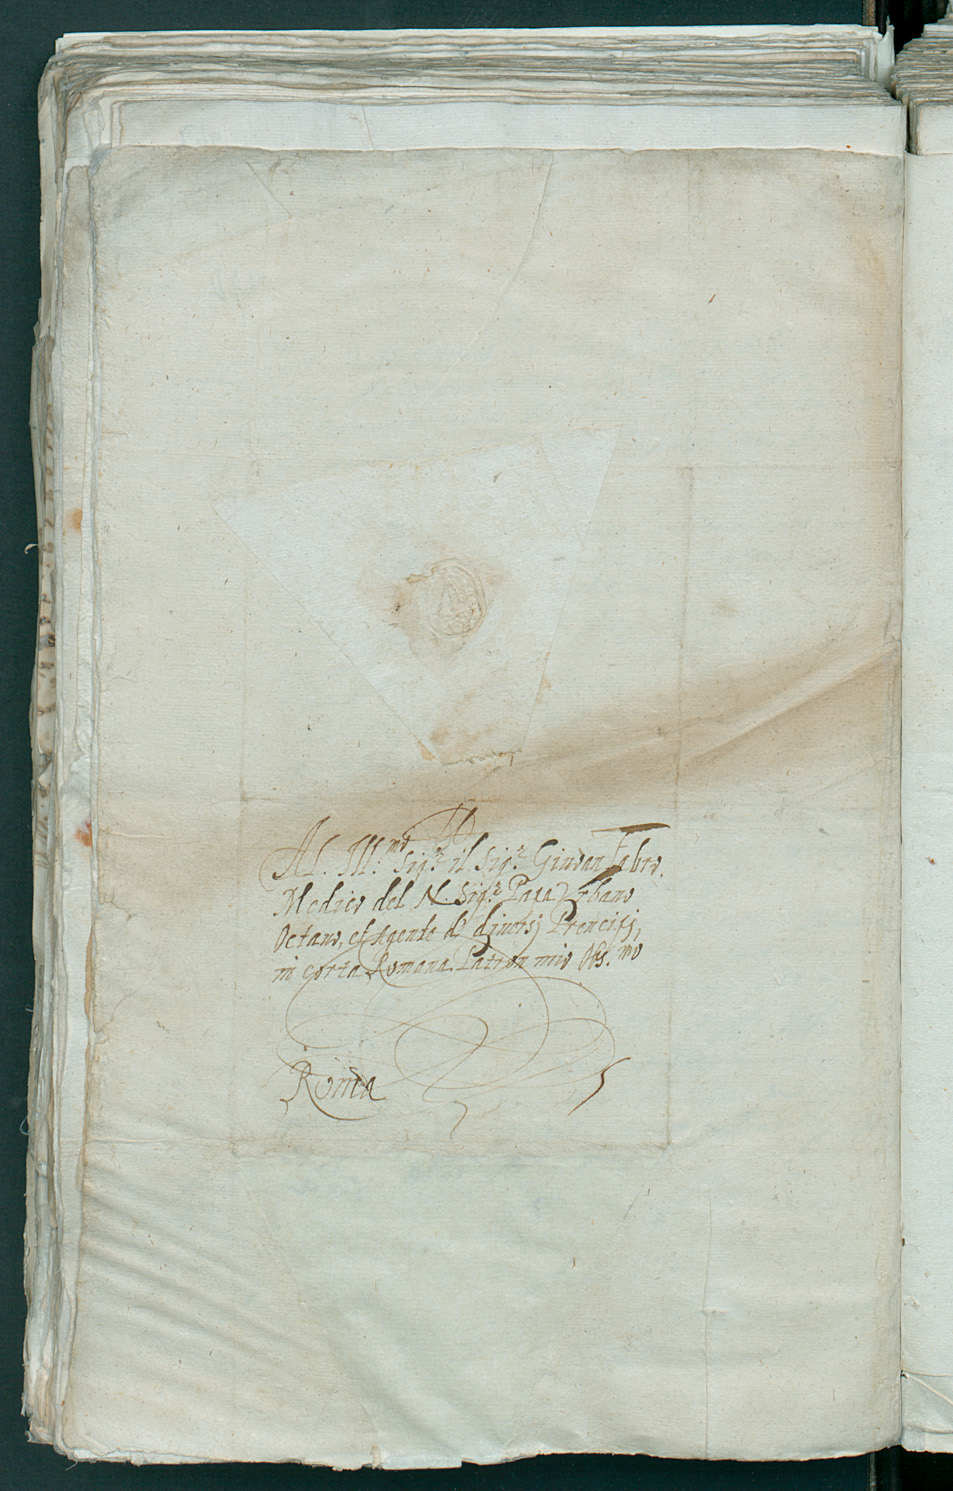 Al Ill.mo Sig.r il Sig.r Giovan Fabro.
Medico del N. Sig.re Papa Urbano
Octavo, et Agente di diversj Prencipj,
in Corta Romana. Patron mio Oss.mo
Roma